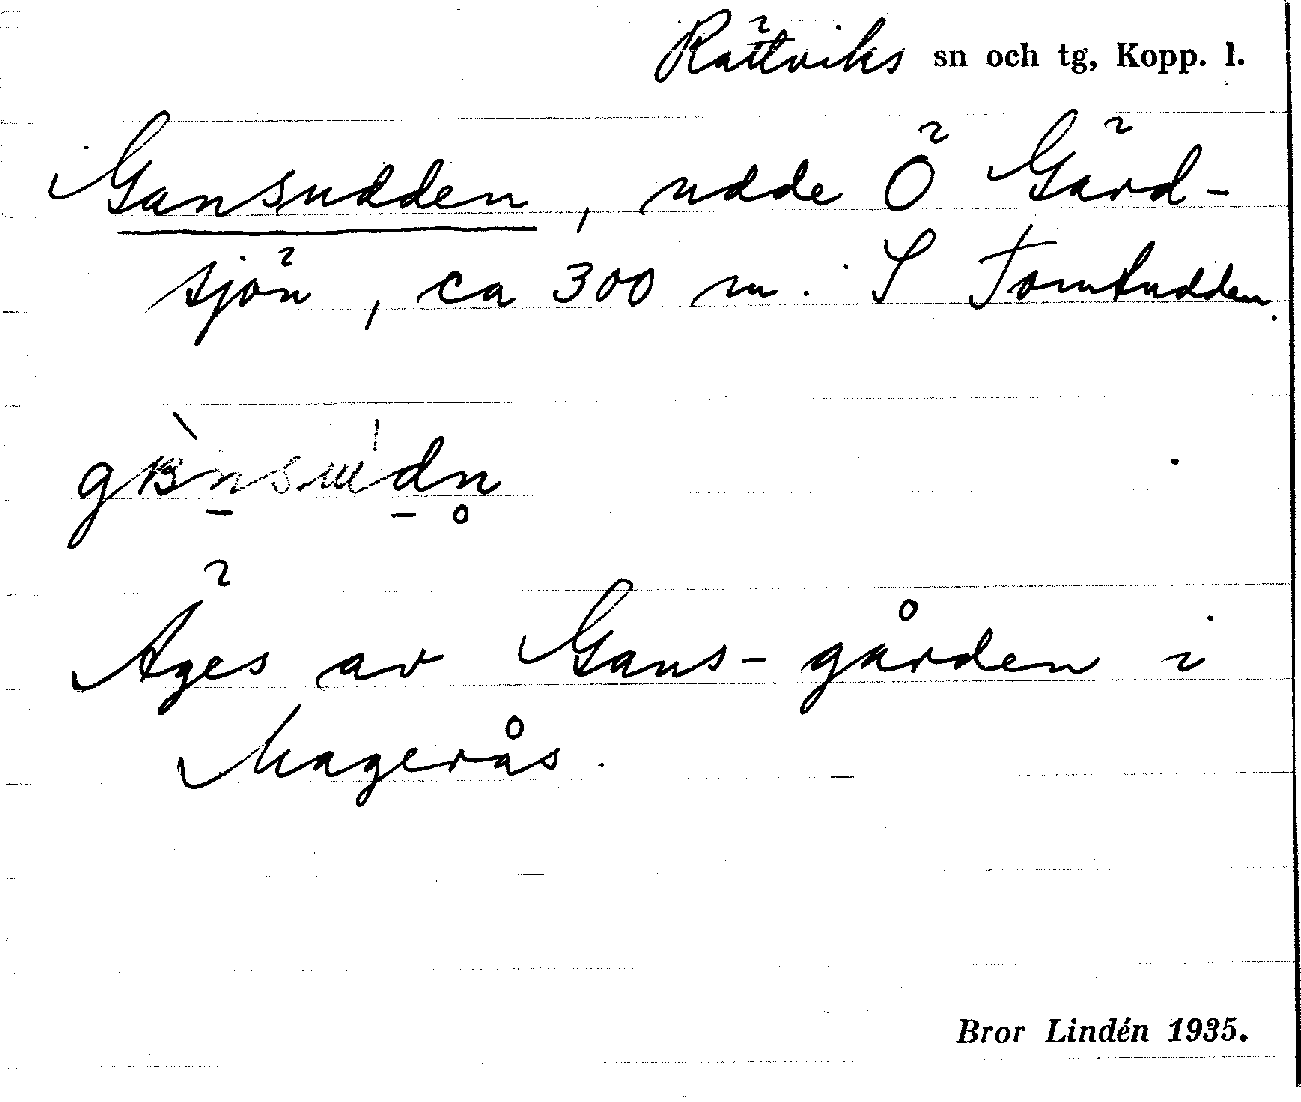 Rättviks sn och tg, Kopp. l.
Gansudden, udde Ö Gärd-
sjön, ca 300 m. S Tomtudden.
Äges av Gans-gården i
Magerås.
Bror Lindén 1935.